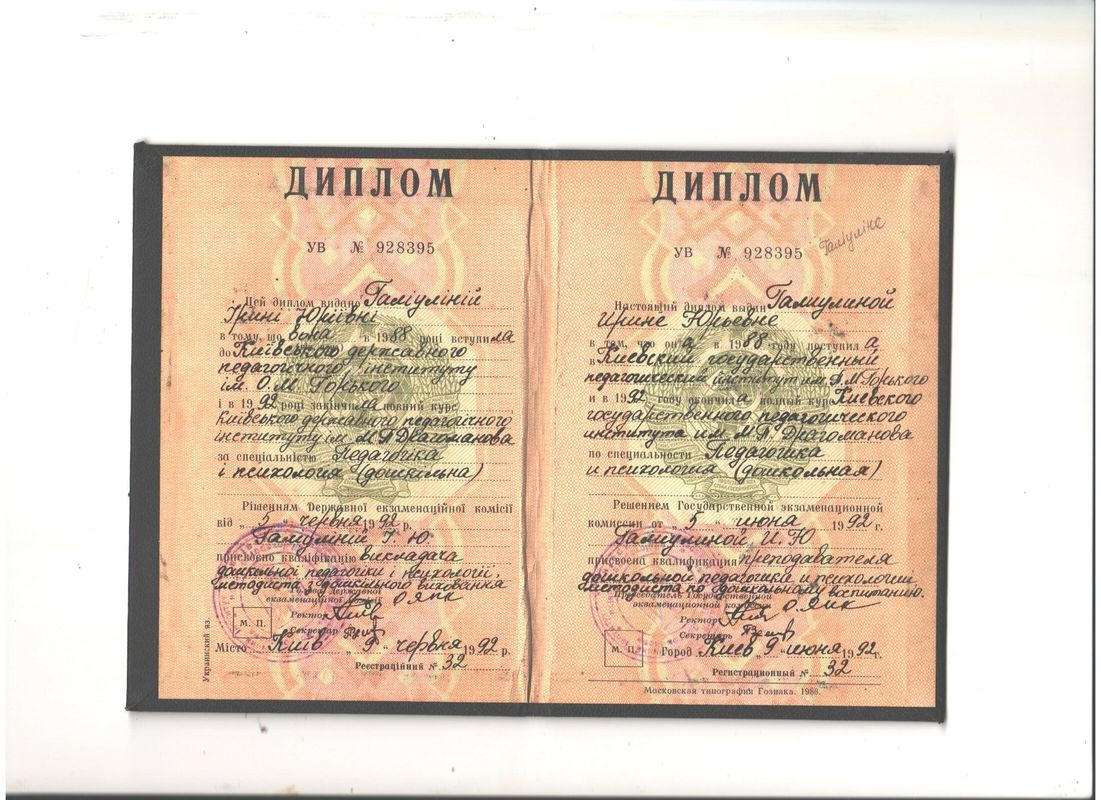 ДИПЛОМ
УВ № 928395
Цей диплом видано Галіуліній
Ірині Юріївні
в тому, що вона в 1988 році вступила
до Київського державного
педагогічного інституту
ім. О.М. Горького
і в 1992 році закінчила повний курс
Київського державного педагогічного
інституту ім. М.П. Драгоманова
за спеціальністю Педагогіка
і психологія (дошкільна)
Рішенням Державної екзаменаційної комісії
від „5“ червня 1992 р.
Галіуліній І. Ю.
присвоєно кваліфікацію викладача
дошкільної педагогіки і психології,
методиста з дошкільного виховання
Голова Державної
екзаменаційної комісії
Ректор
Секретар
М. П.
Місто Київ „9“ червня 1992 р.
Реєстраційний № 32
Украинский яз.
ДИПЛОМ
УВ № 928395
Галіуліна
Настоящий диплом выдан Галиулиной
Ирине Юрьевне
в том, что она в 1988 году поступила
в Киевский государственный
педагогический институт им. А.М. Горького
и в 1992 году окончила полный курс Киевского
государственного педагогического
института им. М.П. Драгоманова
по специальности Педагогика
и психология (дошкольная)
Решением Государственной экзаменационной
комиссии от „5“ июня 1992 г.
Галиулиной И. Ю
присвоена квалификация преподавателя
дошкольной педагогики и психологии,
методиста по дошкольному воспитанию.
Председатель Государственной
экзаменационной комиссии
Ректор
Секретарь
М. П.
Город Киев „9“ июня 1992 г.
Регистрационный № 32
Московская типография Гознака. 1988.